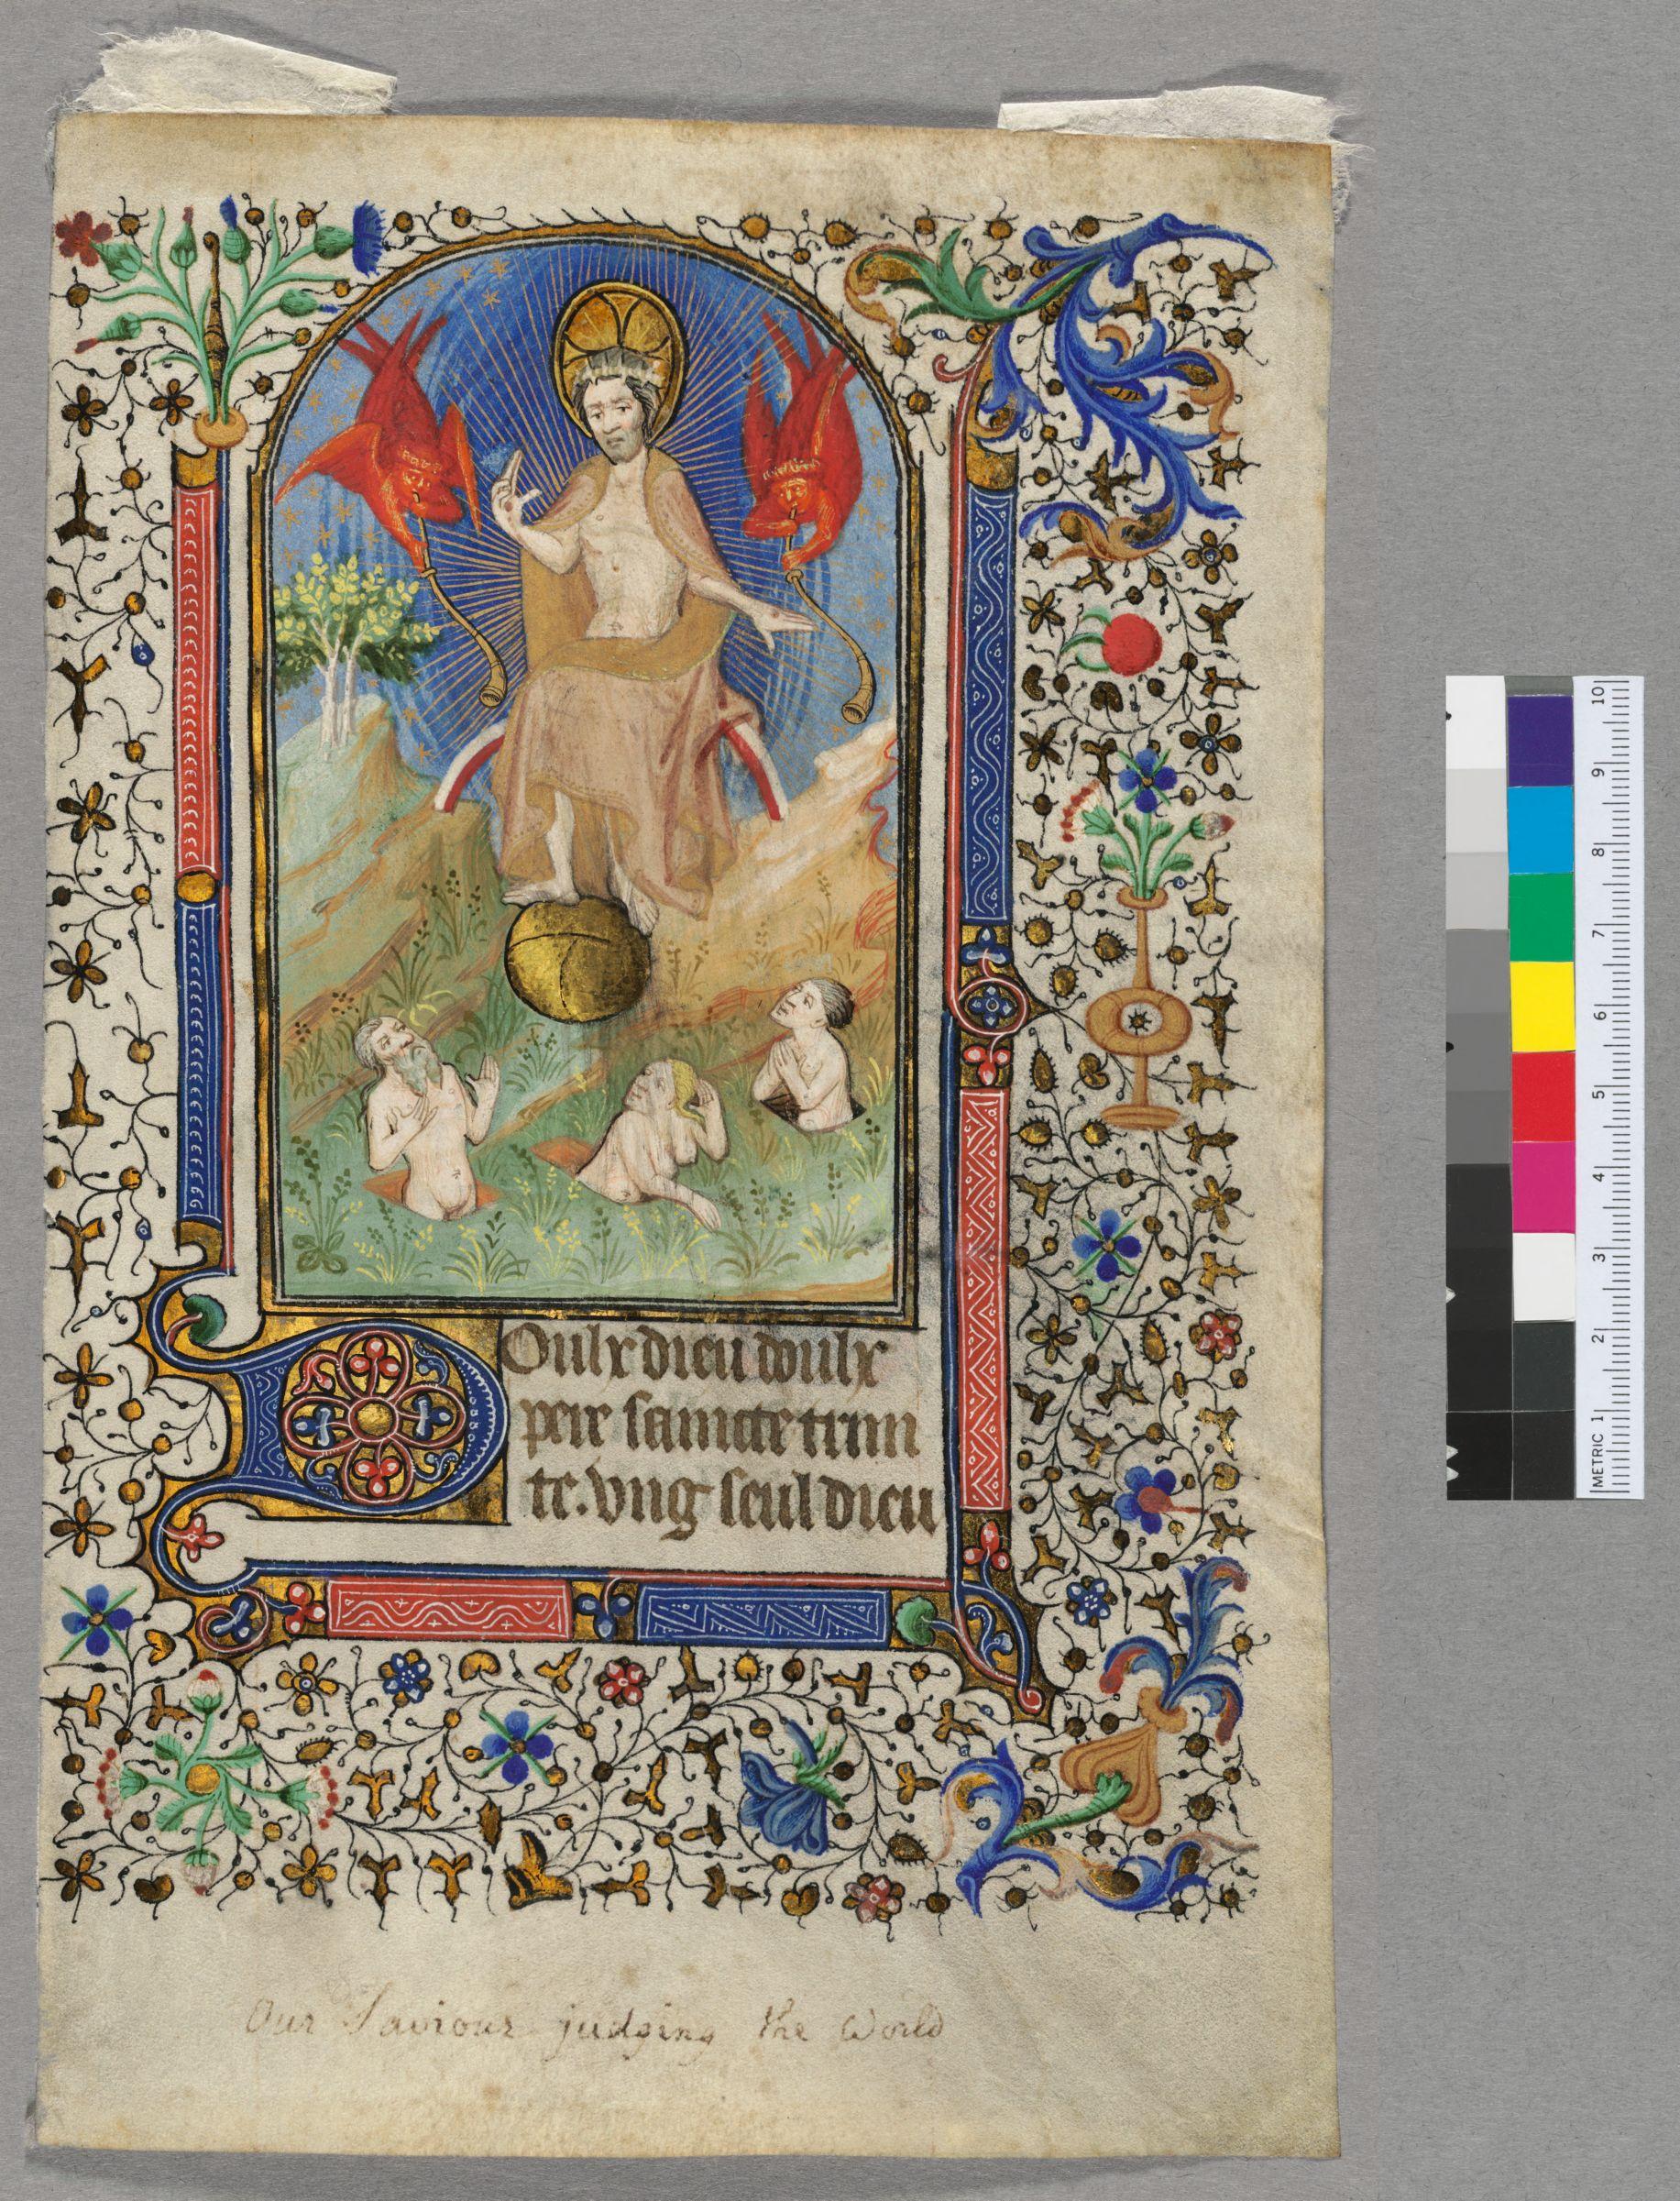 Doulx dieu doulx
pere saincte trini
te. vng seul dieu
Our Saviour judging the World
10
9
8
7
6
5
4
3
2
METRIC 1